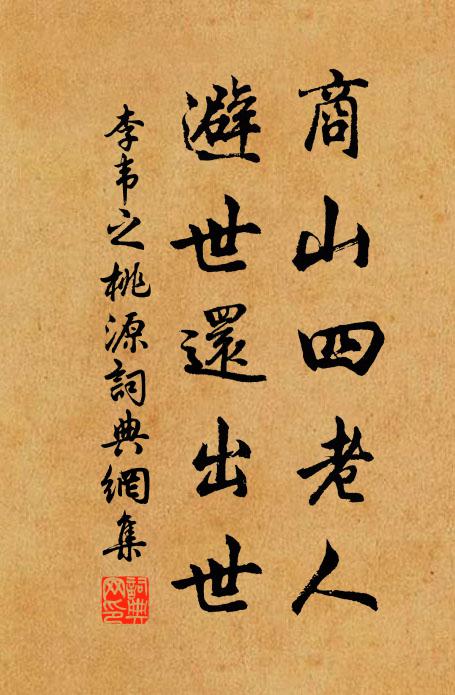 商山四老人
避世還出世
李韦之桃源詞典網集
詞典
网印